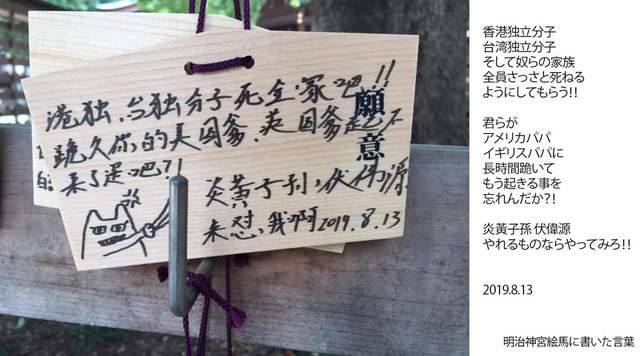 港独,台独分子死全家吧!!
願意
跪久你的美国爹,英国爹起不
来了是吧?!
炎黃子孙,伏偉源
来怼我啊 2019.8.13
香港独立分子
台湾独立分子
そして奴らの家族
全員さっさと死ねる
ようにしてもらう!!
君らが
アメリカパパ
イギリスパパに
長時間跪いて
もう起きる事を
忘れんだか?!
炎黃子孫 伏偉源
やれるものならやってみろ!!
2019.8.13
明治神宮絵馬に書いた言葉